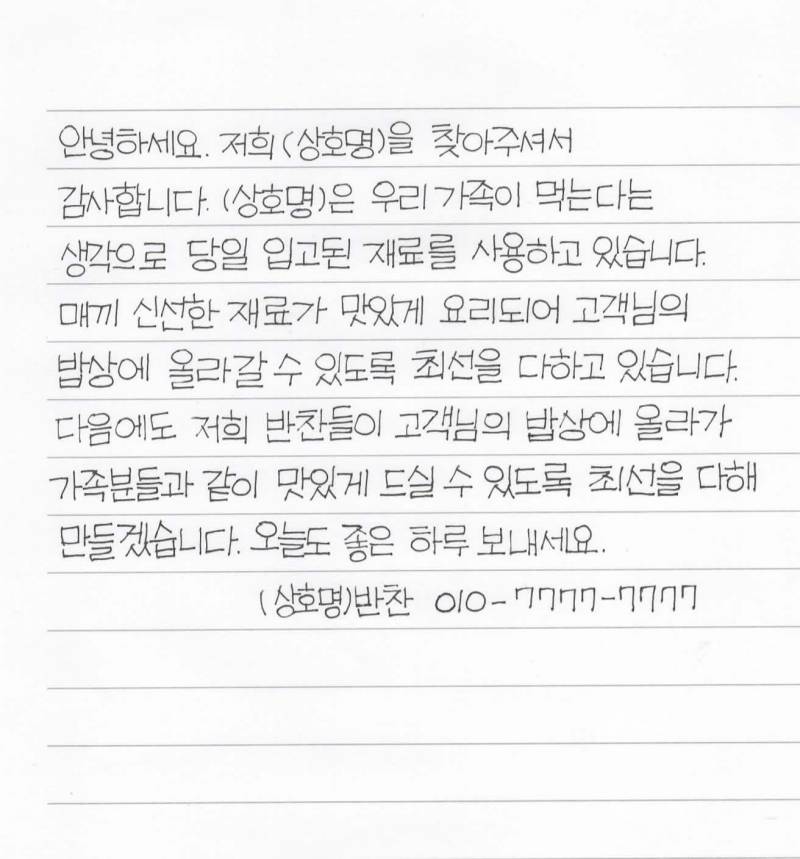 안녕하세요. 저희(상호명)을 찾아주셔서
감사합니다. (상호명)은 우리가족이 먹는다는
생각으로 당일 입고된 재료를 사용하고 있습니다.
매끼 신선한 재료가 맛있게 요리되어 고객님의
밥상에 올라갈 수 있도록 최선을 다하고 있습니다.
다음에도 저희 반찬들이 고객님의 밥상에 올라가
가족분들과 같이 맛있게 드실 수 있도록 최선을 다해
만들겠습니다. 오늘도 좋은 하루 보내세요.
(상호명)반찬 010-7777-7777